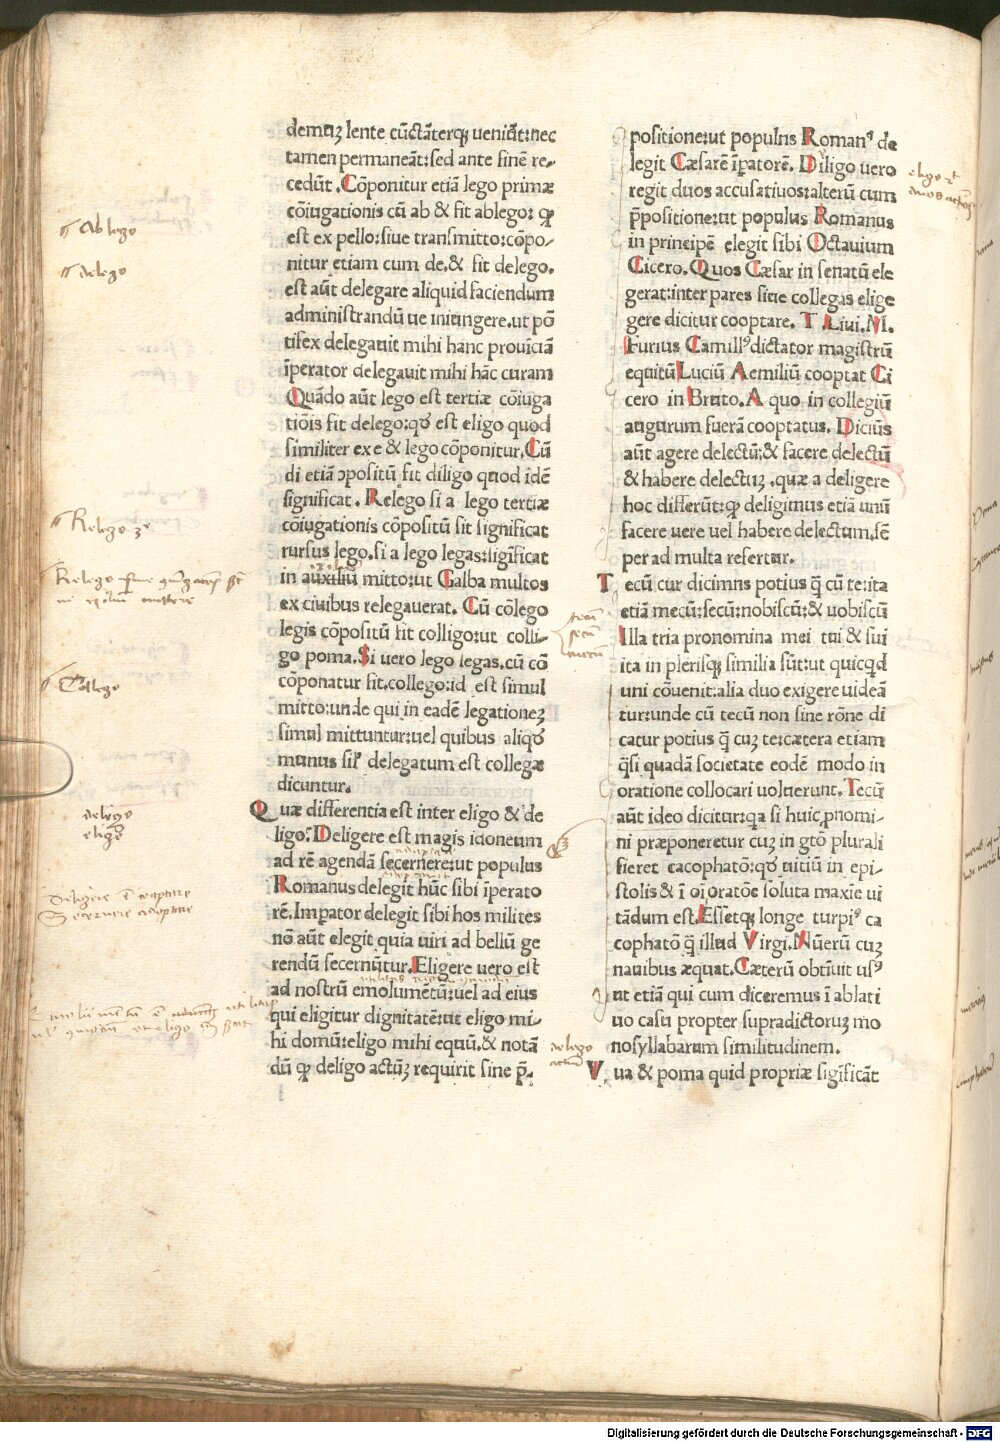 demuꝫ lente cūctāterqꝫ ueniāt:nec
tamen permaneāt:sed ante finē re-
cedūt. Cōponitur etiā lego primæ
cōiugationis cū ab & fit ablego: ꝙ
est ex pello:siue transmitto:cōpo-
nitur etiam cum de.& fit delego.
est aūt delegare aliquid faciendum
administrandū ue iniungere.ut pō
tifex delegauit mihi hanc prouīciā
īperator delegauit mihi hāc curam
Quādo aūt lego est tertiæ cōiuga
tiōis fit delego:qđ est eligo quod
similiter ex e & lego cōponitur.Cū
di etiā ɔpositū fit diligo quod idē
significat. Relego si a lego tertiæ
cōiugationis cōpositū sit significat
rursus lego.si a lego legas:sigīficat
in auxiliū mitto:ut Galba multos
ex ciuibus relegauerat. Cū cōlego
legis cōpositū fit colligo:ut colli-
go poma.Si uero lego legas.cū cō
cōponatur fit.collego:id est simul
mitto:unde qui in eadē legationeꝫ
simul mittuntur:uel quibus aliqđ
munus sil' delegatum est collegæ
dicuntur.
Quæ differentia est inter eligo & de
ligo? Deligere est magis idoneum
ad rē agendā secernere:ut populus
Romanus delegit hūc sibi īperato
rē.Impator delegit sibi hos milites
nō aūt elegit quia uiri ad bellū ge
rendū secernūtur.Eligere uero est
ad nostrū emolumētū:uel ad eius
qui eligitur dignitatē:ut eligo mi-
hi domū:eligo mihi equū.& notā
dū ꝙ deligo actūꝫ requirit sine p̄-
positione:ut populus Romanꝰ de
legit Cæsarē īpatorē. Diligo uero
regit duos accusatiuos:alterū cum
p̄positione:ut populus Romanus
in principē elegit sibi Octauium
Cicero. Quos Cæsar in senatū ele
gerat:inter pares siue collegas elige
gere dicitur cooptare. T .Liui.M.
Furius Camillꝰ dictator magistrū
equitū Luciū Aemiliū cooptat Ci
cero in Bruto. A quo in collegiū
augurum fuerā cooptatus. Diciūs
aūt agere delectū:& facere delectū
& habere delectuꝫ .quæ a deligere
hoc differūt:ꝙ deligimus etiā unū
facere uere uel habere delectum.sē
per ad multa refertur.
Tecū cur dicimus potius q̄ cū te:ita
etiā mecū:secū:nobiscū:& uobiscū
Illa tria pronomina mei tui & sui
ita in plerisqꝫ similia sūt:ut quicqd
uni cōuenit:alia duo exigere uideā
tur:unde cū tecū non sine rōne di
catur potius q̄ cuꝫ te:cætera etiam
q̄si quadā societate eodē modo in
oratione collocari uoluerunt. Tecū
aūt ideo dicitur:qa si huic,pnomi-
ni præponeretur cuꝫ in gtō plurali
fieret cacophatō:qđ uitiū in epi-
stolis & ī oi oratōe soluta maxīe ui
tādum est.Essetqꝫ longe turpiꝰ ca
cophatō q̄ illud Virgi. Nūerū cuꝫ
nauibus æquat. Cæterū obtīuit usꝰ
ut etiā qui cum diceremus ī ablati
uo casu propter supradictoruꝫ mo
nosyllabarum similitudinem.
Vua & poma quid propriæ sigīficāt
Ablego
delego
Relego
Collego
deligo
eligo
tecū
secū
mecū
Digitalisierung gefördert durch die Deutsche Forschungsgemeinschaft - DFG